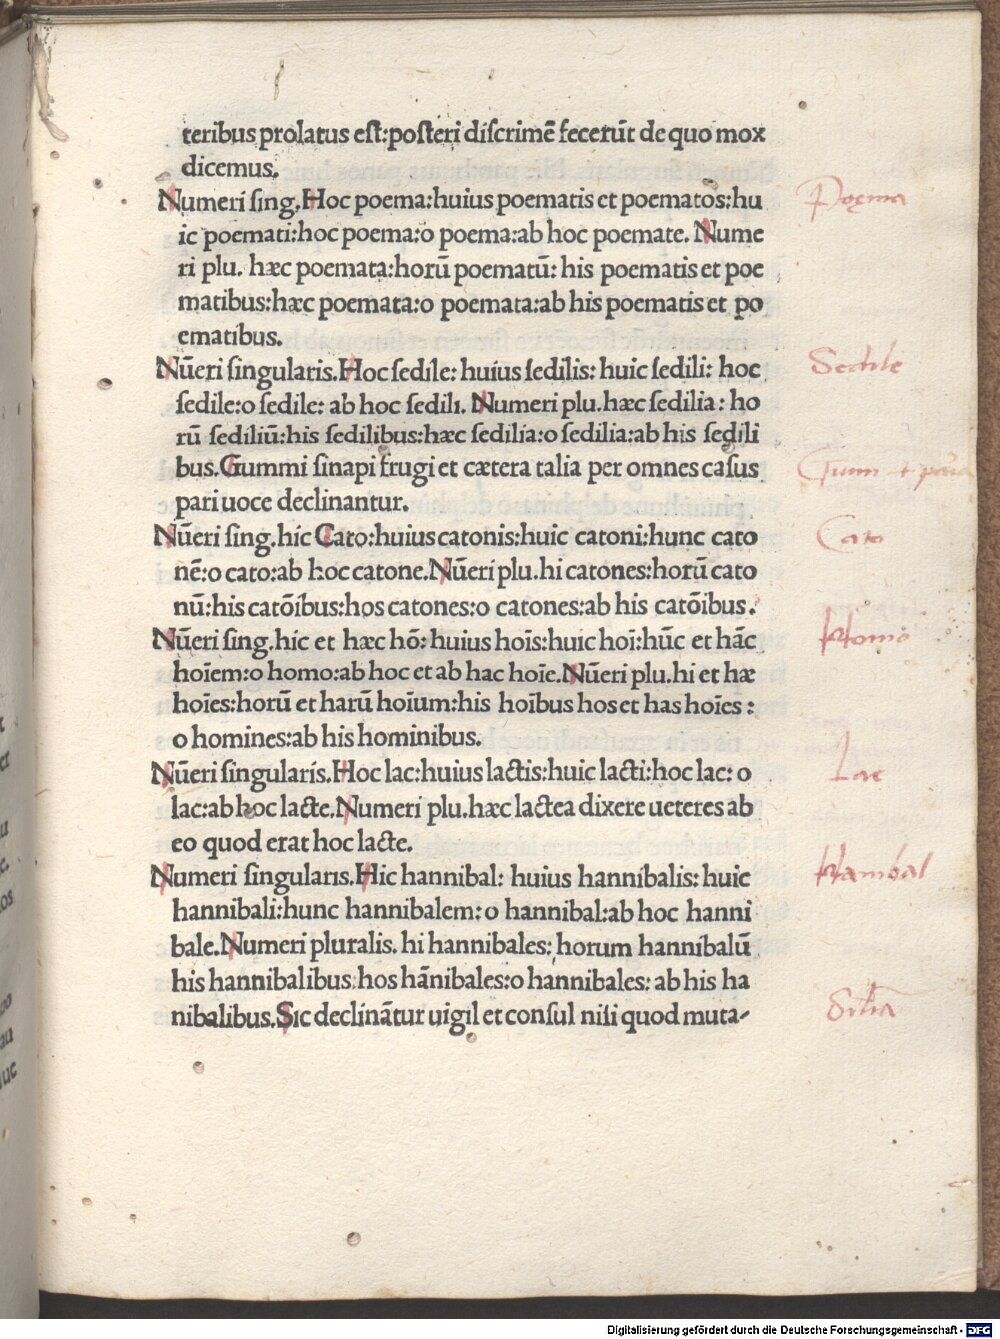 teribus prolatus est:posteri discrimē fecerūt de quo mox
dicemus.
Numeri sing. Hoc poema:huius poematis et poematos:hu
ic poemati:hoc poema:o poema:ab hoc poemate. Nume
ri plu. hæc poemata:horū poematū: his poematis et poe
matibus:hæc poemata:o poemata:ab his poematis et po
ematibus.
Nūeri singularis. Hoc sedile: huius sedilis: huic sedili: hoc
sedile:o sedile: ab hoc sedili. Numeri plu.hæc sedilia: ho
rū sediliū:his sedilibus:hæc sedilia:o sedilia:ab his sedili
bus.Gummi sinapi frugi et cætera talia per omnes casus
pari uoce declinantur.
Nūeri sing.hic Cato:huius catonis:huic catoni:hunc cato
nē:o cato:ab hoc catone.Nūeri plu.hi catones:horū cato
nū:his catōibus:hos catones:o catones:ab his catōibus.
Nūeri sing.hic et hæc hō: huius hoīs:huic hoī:hūc et hāc
hoīem:o homo:ab hoc et ab hac hoīe.Nūeri plu.hi et hæ
hoīes:horū et harū hoīum:his hoībus hos et has hoīes:
o homines:ab his hominibus.
Nūeri singularis. Hoc lac:huius lactis:huic lacti:hoc lac: o
lac:ab hoc lacte. Numeri plu.hæc lactea dixere ueteres ab
eo quod erat hoc lacte.
Numeri singularis. Hic hannibal: huius hannibalis: huic
hannibali:hunc hannibalem: o hannibal:ab hoc hanni
bale.Numeri pluralis. hi hannibales: horum hannibalū
his hannibalibus hos hānibales:o hannibales: ab his ha
nibalibus.Sic declinātur uigil et consul nisi quod muta-
Poema
Sedile
Cato
Homo
Lac
Hanibal
Digitalisierung gefördert durch die Deutsche Forschungsgemeinschaft - DFG